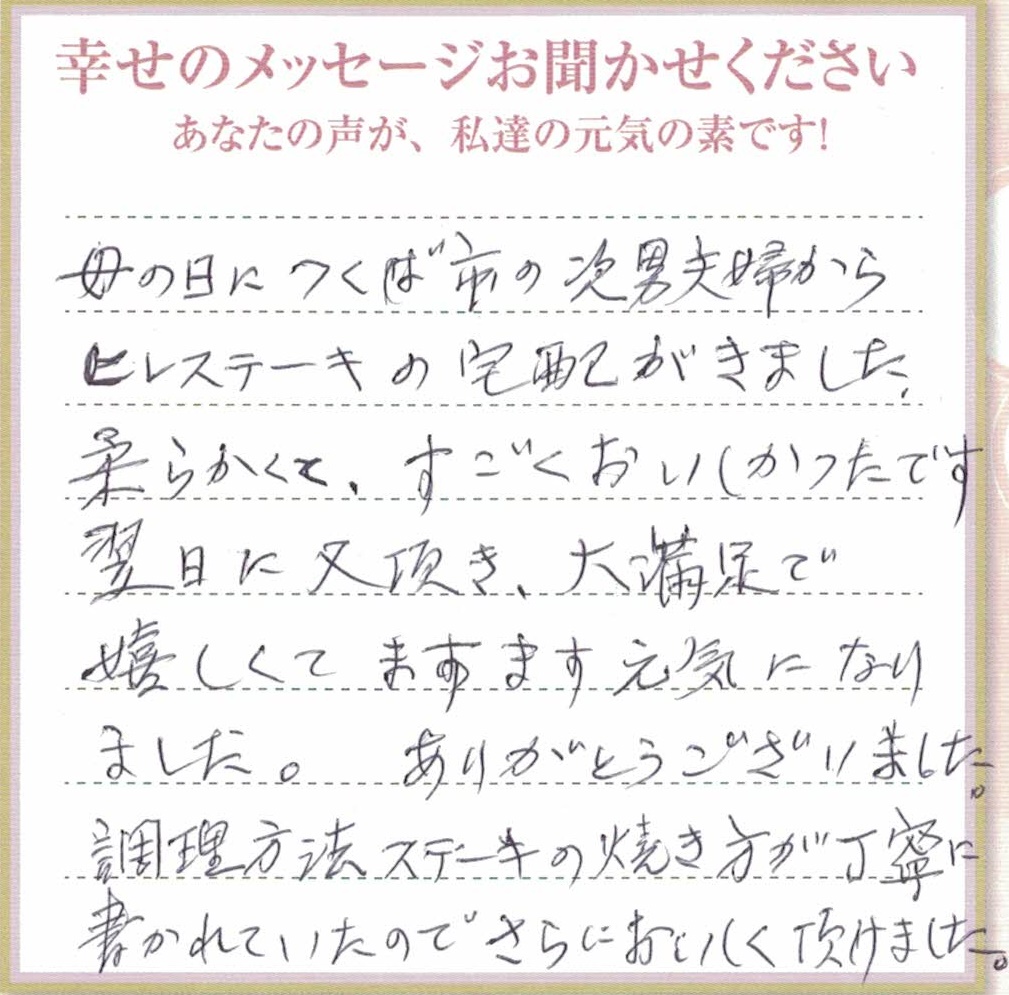 幸せのメッセージお聞かせください
あなたの声が、私達の元気の素です!
母の日につくば市の次男夫婦から
ヒレステーキの宅配がきました、
柔らかくて、すごくおいしかったです
翌日に又頂き、大満足で
嬉しくてますます元気になり
ました。 ありがとうございました。
調理方法ステーキの焼き方が丁寧に
書かれていたのでさらにおいしく頂けました。